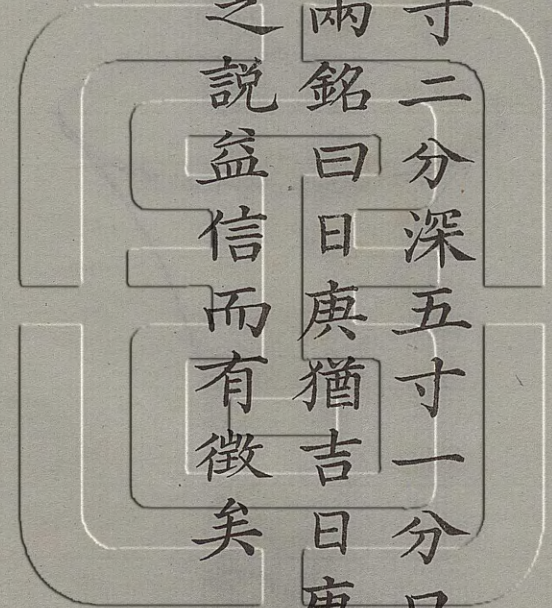 寸二分深五寸一分口
兩銘曰日庚猶吉日庚
之説益信而有徵矣